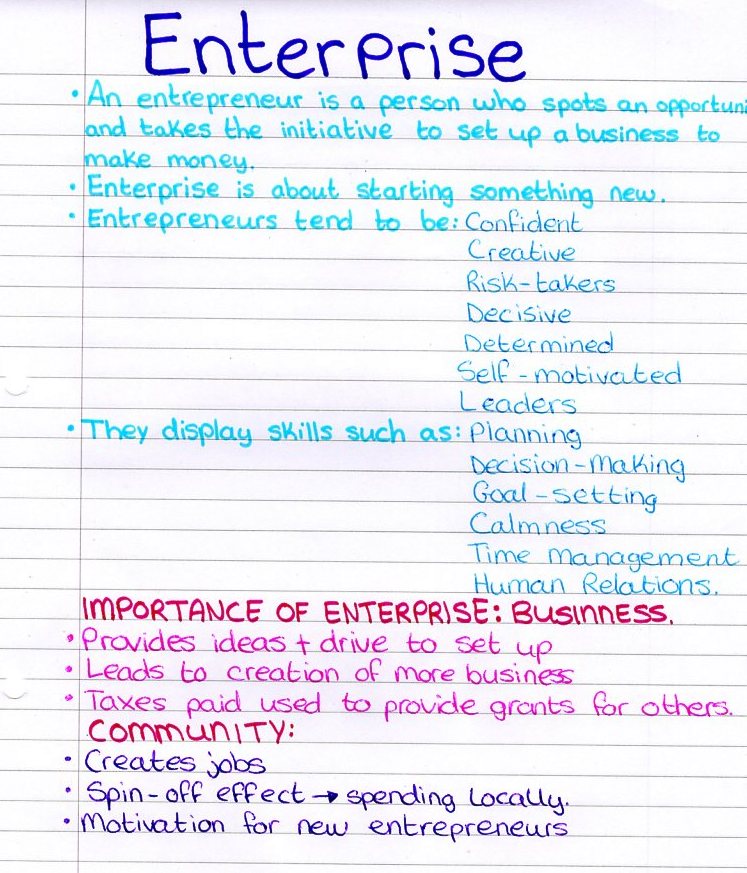 Enterprise
• An entrepreneur is a person who spots an opportuni
and takes the initiative to set up a business to
make money.
• Enterprise is about starting something new.
• Entrepreneurs tend to be: Confident
Creative
Risk-takers
Decisive
Determined
Self-motivated
Leaders
• They display skills such as: Planning
Decision-Making
Goal-setting
Calmness
Time Management
Human Relations.
IMPORTANCE OF ENTERPRISE: BUSINNESS.
• Provides ideas + drive to set up
• Leads to creation of more business
• Taxes paid used to provide grants for others.
COMMUNITY:
• Creates jobs
• Spin-off effect → spending locally.
• Motivation for new entrepreneurs